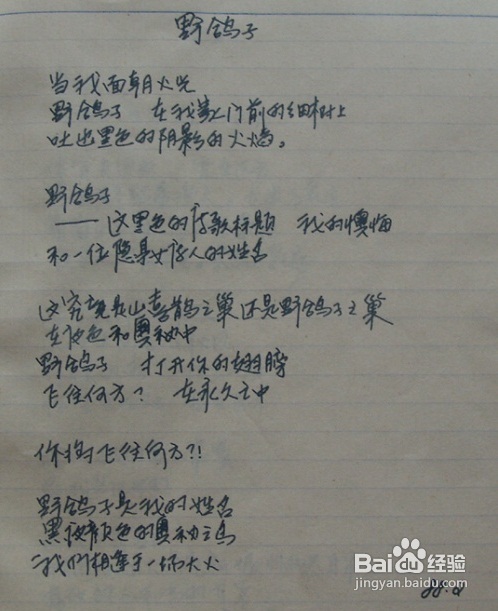 野鸽子
当我面朝火光
野鸽子 在我家门前的细树上
吐出黑色的阴影的火焰。
野鸽子
——这黑色的诗歌标题 我的懊悔
和一位隐身女诗人的姓名
这究竟是山喜鹊之巢还是野鸽子之巢
在夜色和奥秘中
野鸽子 打开你的翅膀
飞往何方? 在永久之中
你将飞往何方?!
野鸽子是我的姓名
黑夜颜色的奥秘之鸟
我们相逢于一场大火
88.2
Baidu 经验
jingyan.baidu.com